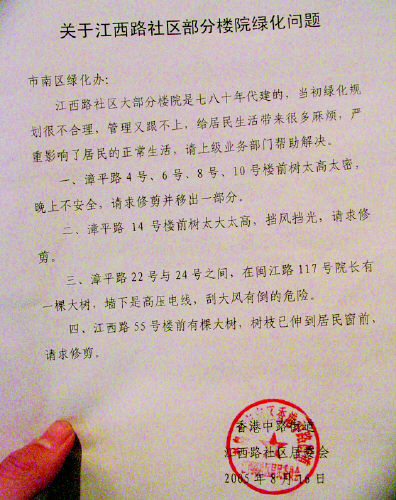 关于江西路社区部分楼院绿化问题
市南区绿化办:
江西路社区大部分楼院是七八十年代建的,当初绿化规
划很不合理,管理又跟不上,给居民生活带来很多麻烦,严
重影响了居民的正常生活,请上级业务部门帮助解决。
一、漳平路4号、6号、8号、10号楼前树太高太密,
晚上不安全,请求修剪并移出一部分。
二、漳平路 14号楼前树太大太高,挡风挡光,请求修
剪。
三、漳平路22号与24号之间,在闽江路117号院长有
一棵大树,墙下是高压电线,刮大风有倒的危险。
四、江西路55号楼前有棵大树,树枝已伸到居民窗前、
请求修剪。
香港中路街道
江西路社区居委会
2005年8月16日